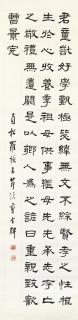 君童齔好學甄極毖緯無文不綜賢孝之性根
生於心收養季祖母供事繼母先意承志存亡之
敬禮無遺闕是以鄉人為之諺曰重親致歡
曹景完